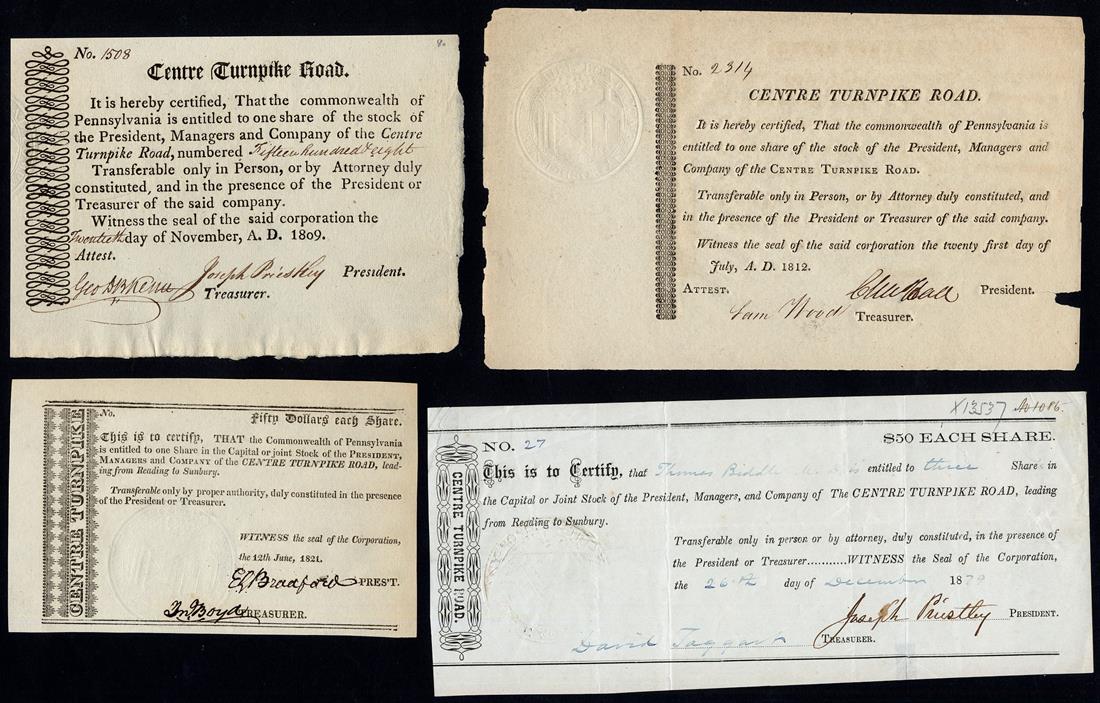 No. 1508
Centre Turnpike Road.
It is hereby certified, That the commonwealth of
Pennsylvania is entitled to one share of the stock of
the President, Managers and Company of the Centre
Turnpike Road, numbered Fifteen hundred & eight
Transferable only in Person, or by Attorney duly
constituted, and in the presence of the President or
Treasurer of the said company.
Witness the seal of the said corporation the
Twentieth day of November, A. D. 1809.
Attest.
Joseph Priestley President.
Treasurer.
No. 2314
CENTRE TURNPIKE ROAD.
It is hereby certified, That the commonwealth of Pennsylvania is
entitled to one share of the stock of the President, Managers and
Company of the CENTRE TURNPIKE ROAD.
Transferable only in Person, or by Attorney duly constituted, and
in the presence of the President or Treasurer of the said company.
Witness the seal of the said corporation the twenty first day of
July, A. D. 1812.
ATTEST. Hall President.
Sam Wood Treasurer.
CENTRE TURNPIKE
No. Fifty Dollars each Share.
This is to certify, THAT the Commonwealth of Pennsylvania
is entitled to one Share in the Capital or joint Stock of the PRESIDENT,
MANAGERS and COMPANY of the CENTRE TURNPIKE ROAD, lead-
ing from Reading to Sunbury.
Transferable only by proper authority, duly constituted in the presence
of the President or Treasurer.
WITNESS the seal of the Corporation,
the 12th June, 1821.
Bradford PRES'T.
Jno Boyd TREASURER.
CENTRE TURNPIKE ROAD.
X13537 No 1086.
NO. 27 $50 EACH SHARE.
This is to Certify, that Thomas Biddle is entitled to three Shares in
the Capital or Joint Stock of the President, Managers, and Company of The CENTRE TURNPIKE ROAD, leading
from Reading to Sunbury.
Transferable only in person or by attorney, duly constituted, in the presence of
the President or Treasurer...........WITNESS the Seal of the Corporation,
the 26th day of December 1879
Joseph Priestley PRESIDENT.
David Taggart TREASURER.